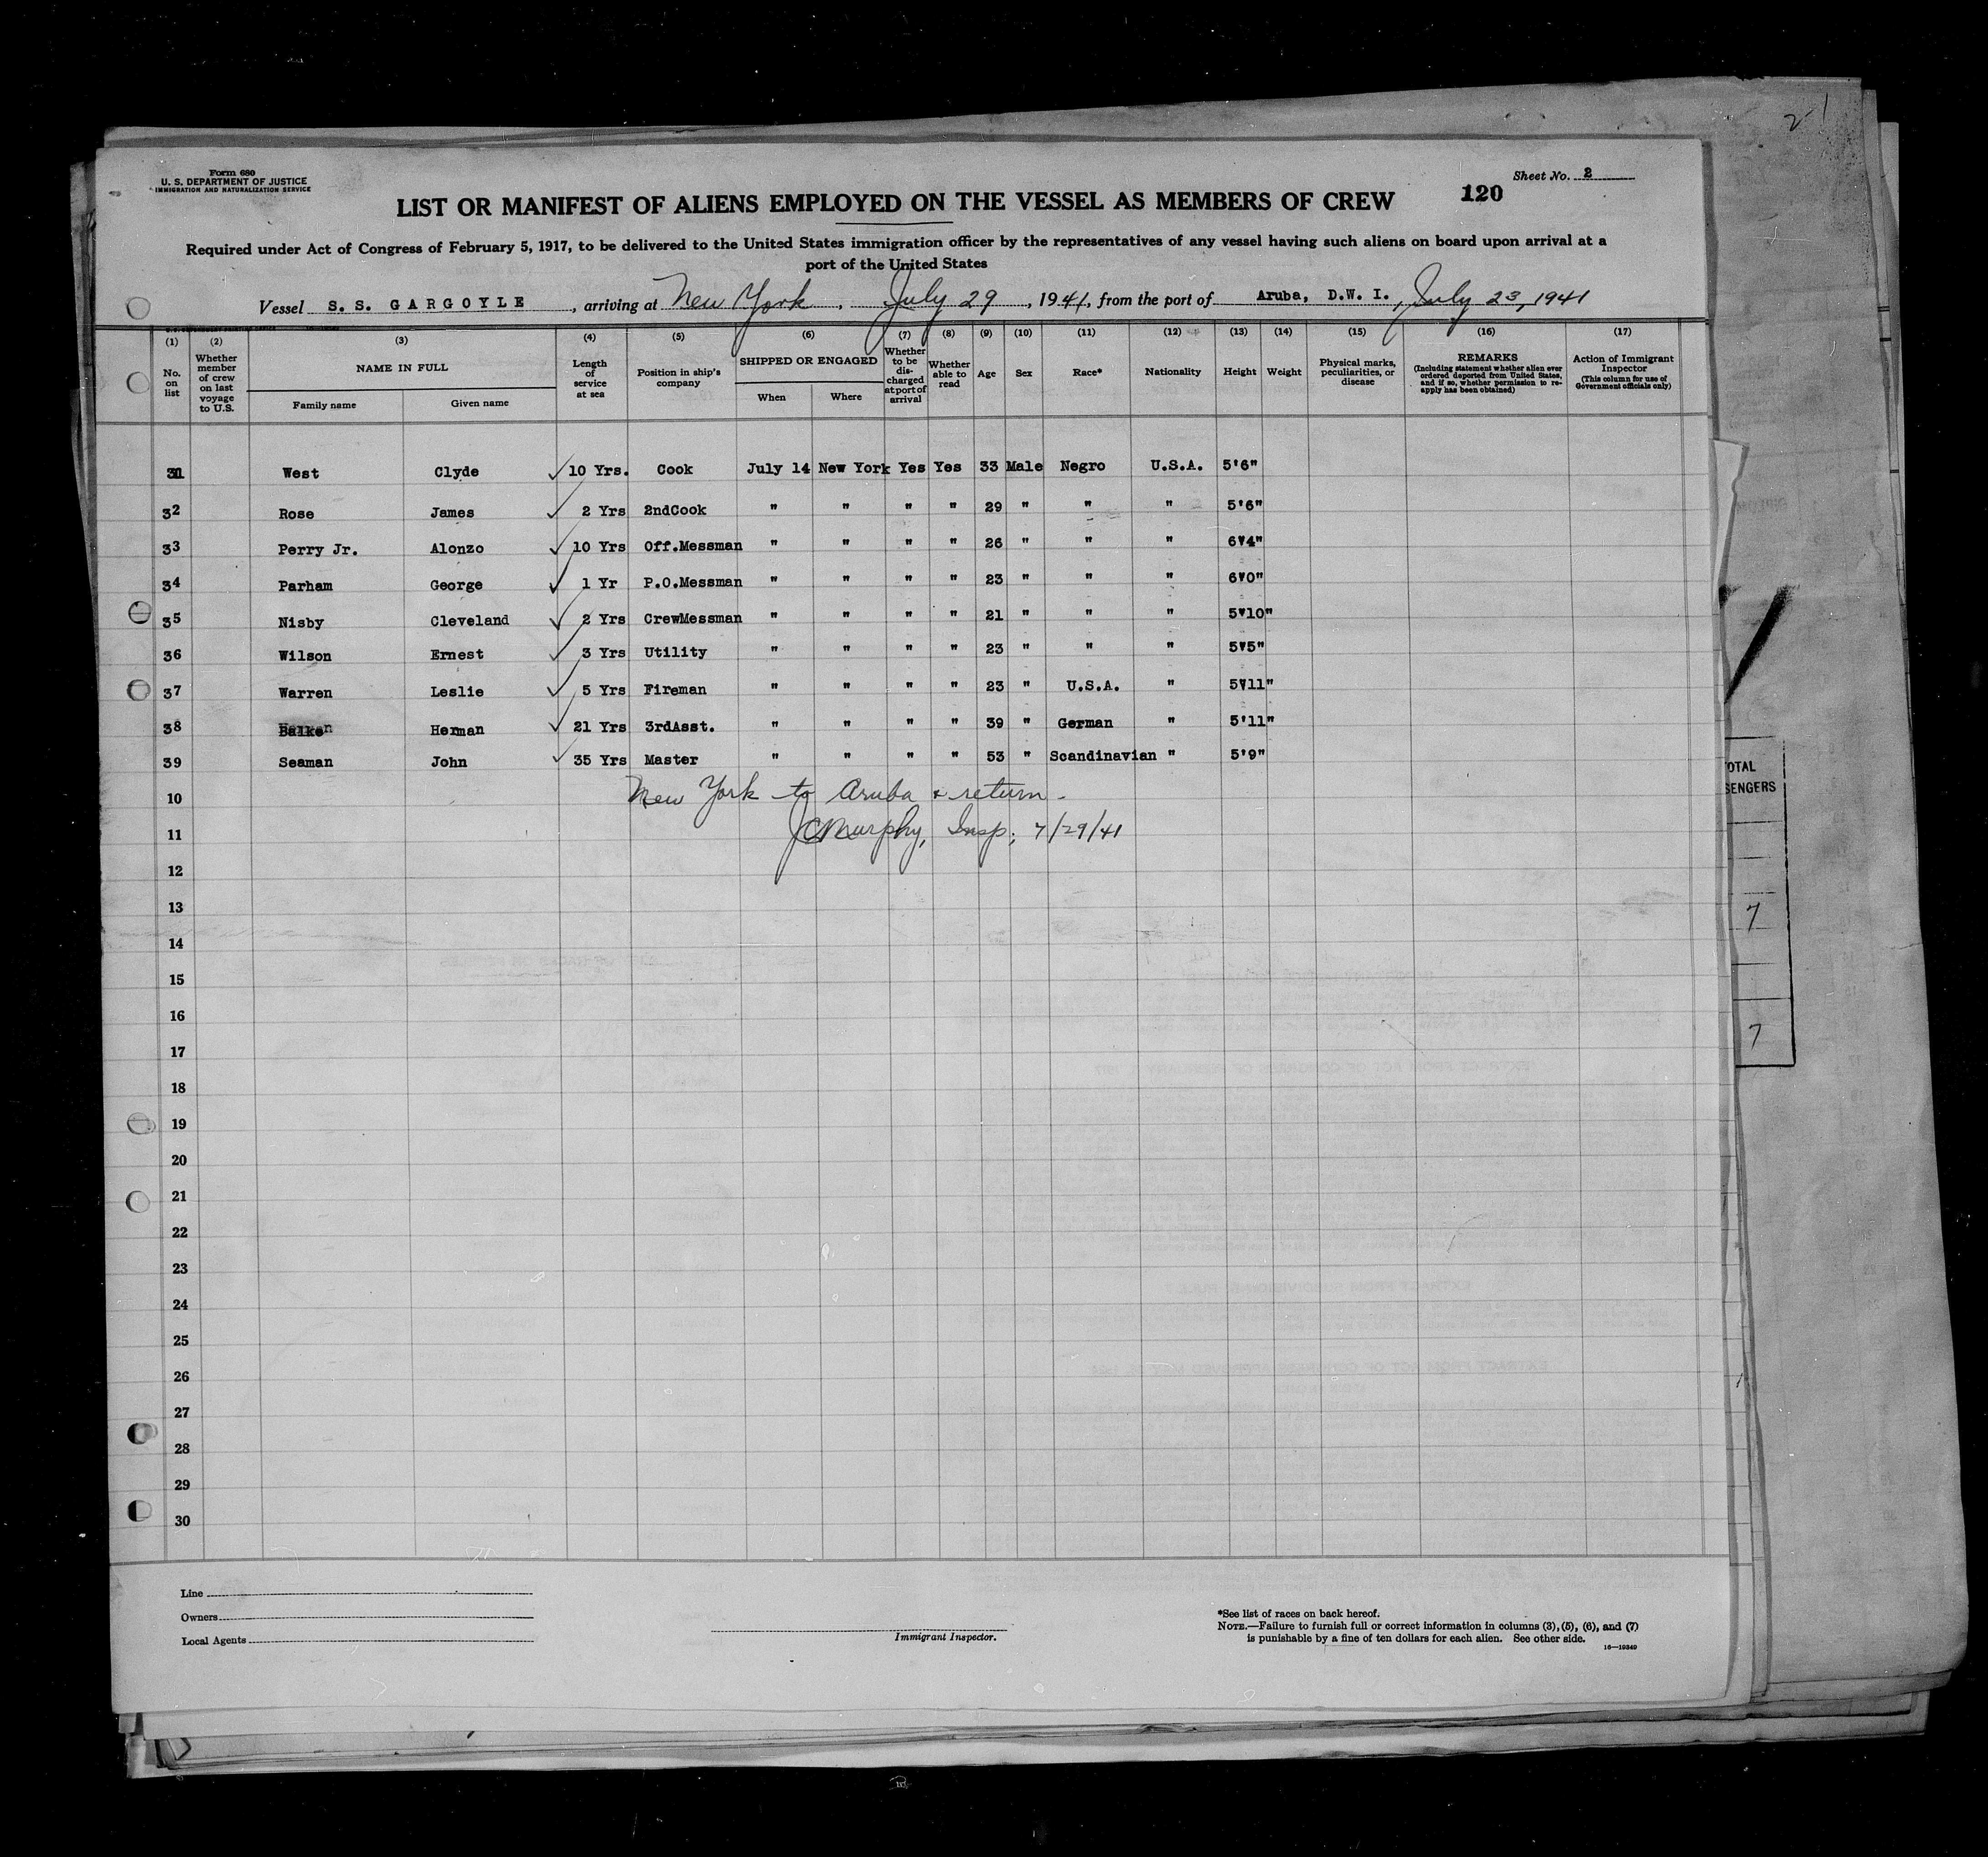 Form 680
U. S. DEPARTMENT OF JUSTICE
IMMIGRATION AND NATURALIZATION SERVICE
Sheet No. 2
120
LIST OR MANIFEST OF ALIENS EMPLOYED ON THE VESSEL AS MEMBERS OF CREW
Required under Act of Congress of February 5, 1917, to be delivered to the United States immigration officer by the representatives of any vessel having such aliens on board upon arrival at a
port of the United States
Vessel S. S. GARGOYLE, arriving at New York, July 29, 1941, from the port of Aruba, D.W. I., July 23, 1941
(1) No. on list
(2) Whether member of crew on last voyage to U.S.
(3) NAME IN FULL
Family name Given name
(4) Length of service at sea
(5) Position in ship's company
(6) SHIPPED OR ENGAGED
When Where
(7) Whether to be discharged at port of arrival
(8) Whether able to read
(9) Age
(10) Sex
(11) Race*
(12) Nationality
(13) Height
(14) Weight
(15) Physical marks, peculiarities, or disease
(16) REMARKS
(Including statement whether alien ever ordered deported from United States, and if so, whether permission to re-apply has been obtained)
(17) Action of Immigrant Inspector
(This column for use of Government officials only)
31 West Clyde ✓ 10 Yrs. Cook July 14 New York Yes Yes 33 Male Negro U.S.A. 5'6"
32 Rose James ✓ 2 Yrs 2ndCook " " " " 29 " " " 5'6"
33 Perry Jr. Alonzo ✓ 10 Yrs Off.Messman " " " " 26 " " " 6'4"
34 Parham George ✓ 1 Yr P.O.Messman " " " " 23 " " " 6'0"
35 Nisby Cleveland ✓ 2 Yrs CrewMessman " " " " 21 " " " 5'10"
36 Wilson Ernest ✓ 3 Yrs Utility " " " " 23 " " " 5'5"
37 Warren Leslie ✓ 5 Yrs Fireman " " " " 23 " U.S.A. " 5'11"
38 Herman ✓ 21 Yrs 3rdAsst. " " " " 39 " German " 5'11"
39 Seaman John ✓ 35 Yrs Master " " " " 53 " Scandinavian " 5'9"
10 New York to Aruba & return -
11 JCMurphy, Insp; 7/29/41
12
13
14
15
16
17
18
19
20
21
22
23
24
25
26
27
28
29
30
Line
Owners
Local Agents
Immigrant Inspector.
*See list of races on back hereof.
NOTE.—Failure to furnish full or correct information in columns (3), (5), (6), and (7)
is punishable by a fine of ten dollars for each alien. See other side.
16—19349
2
OTAL
SENGERS
7
7